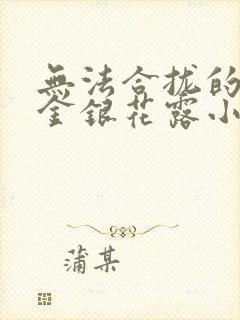 無法合拢的
金銀花露小
蒲某